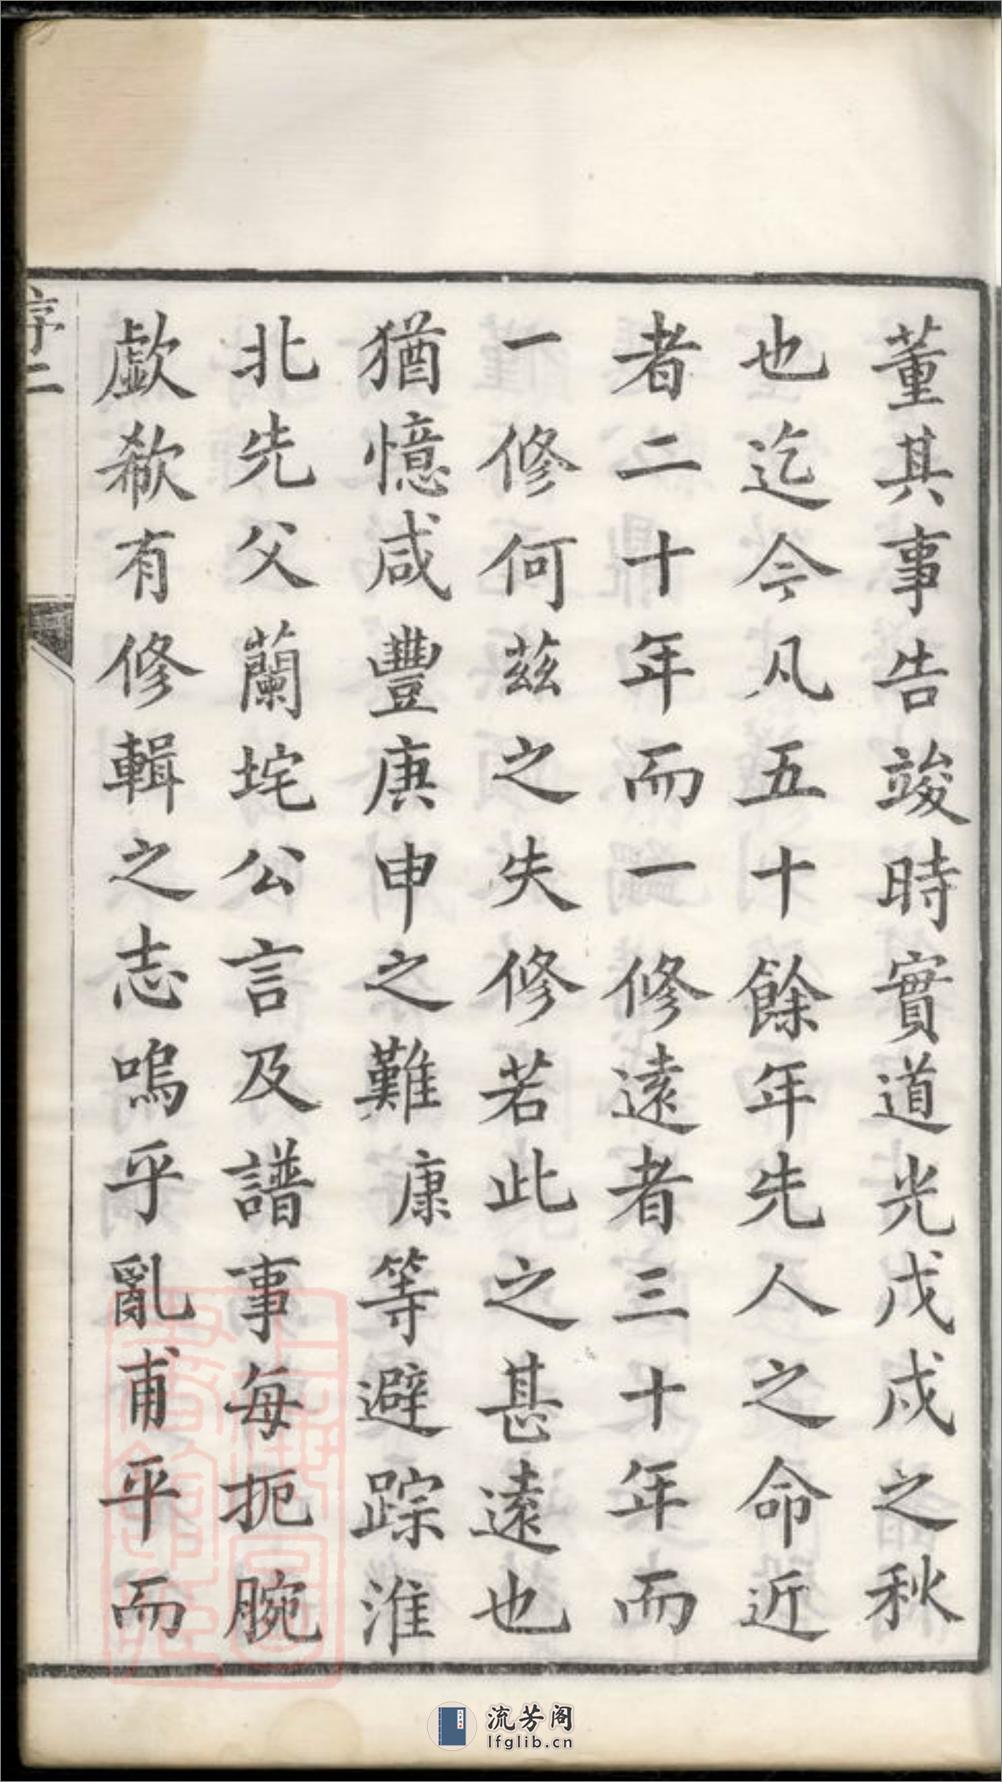 董其事告竣時實道光戊戌之秋
也迄今凡五十餘年先人之命近
者二十年而一修遠者三十年而
一修何茲之失修若此之甚遠也
猶憶咸豐庚申之難康等避踪淮
北先父蘭垞公言及譜事每扼腕
歔欷有修輯之志嗚乎亂甫平而
序二
流芳阁
lfglib.cn